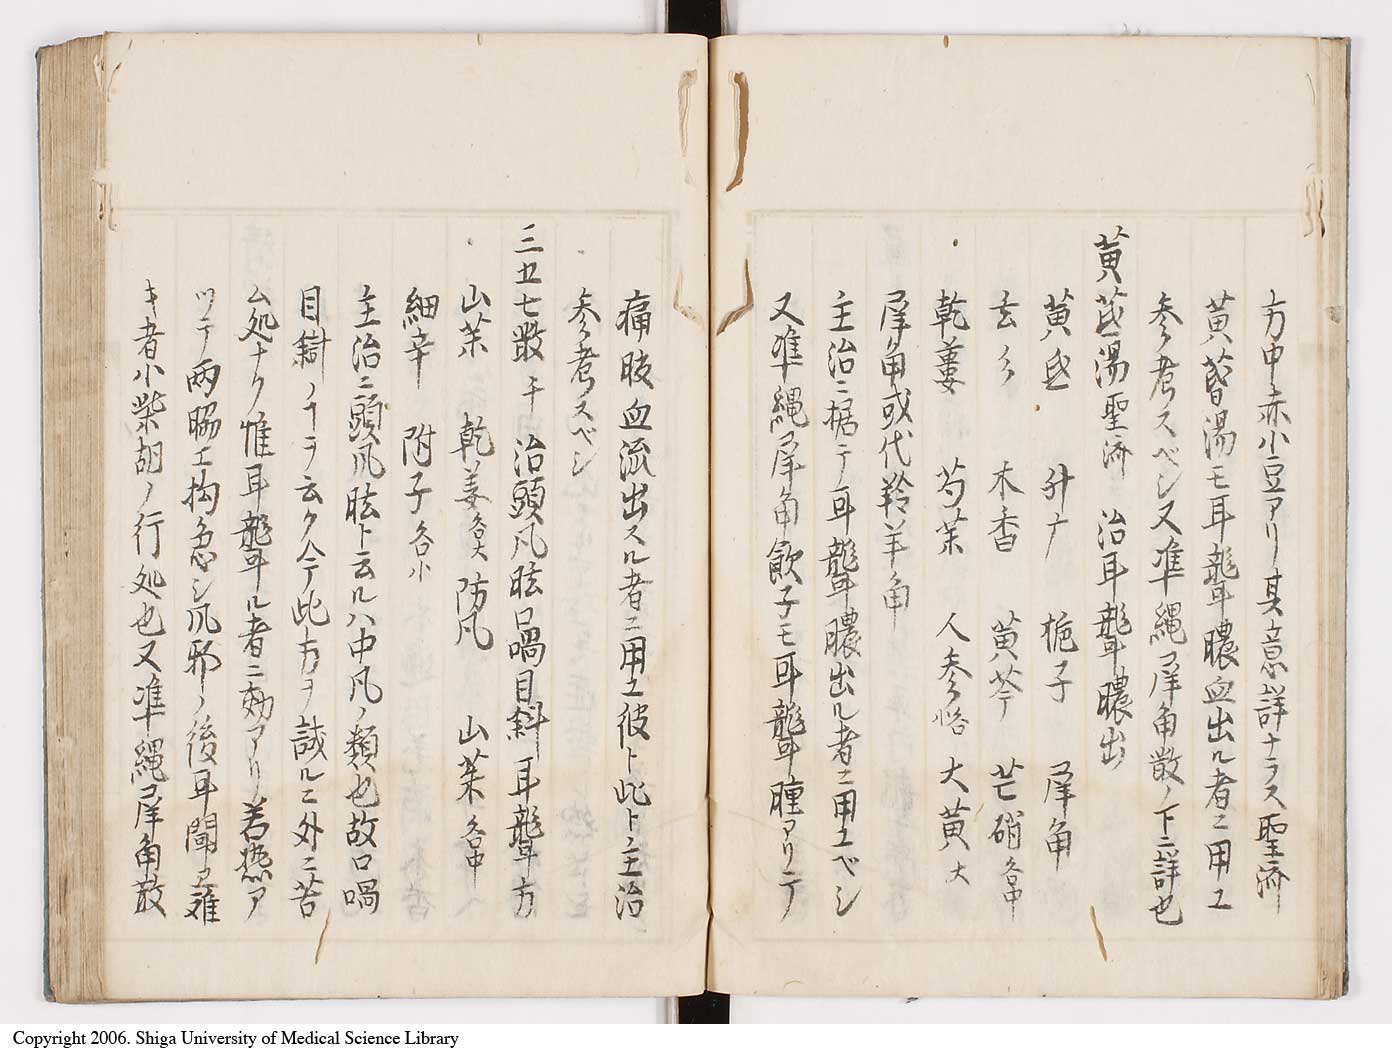 方中赤小豆アリ其意詳ナラス聖済
黄蓍湯モ耳聾膿血出ル者ニ用エ
参考スベシ又準縄犀角散ノ下ニ詳也
黄芪湯聖済　治耳聾膿出
黄芪　升麻　栀子　犀角
玄参　木香　黄芩　芒硝各中
乾薑　芍薬　人参各　大黄大
犀角或代羚羊角
主治ニ据テ耳聾膿出ル者ニ用エベシ
又準縄犀角飲子モ耳聾腫アリテ
痛肢血流出スル者ニ用エ彼ト此ト主治
参考スベシ
三五七散千　治頭風眩口喎目斜耳聾方
山茱　乾姜各大　防風　山茱各中
細辛　附子各小
主治ニ頭風眩ト云ルハ中風ノ類也故口喎
目斜ノヿヲ云ク今此方ヲ誠ルニ外ニ苦
ム処ナク惟耳聾ル者ニ効アリ若熱ア
ツテ両脇エ拘急シ風邪ノ後耳聞ヱ難
キ者小柴胡ノ行処也又準縄犀角散
Copyright 2006. Shiga University of Medical Science Library